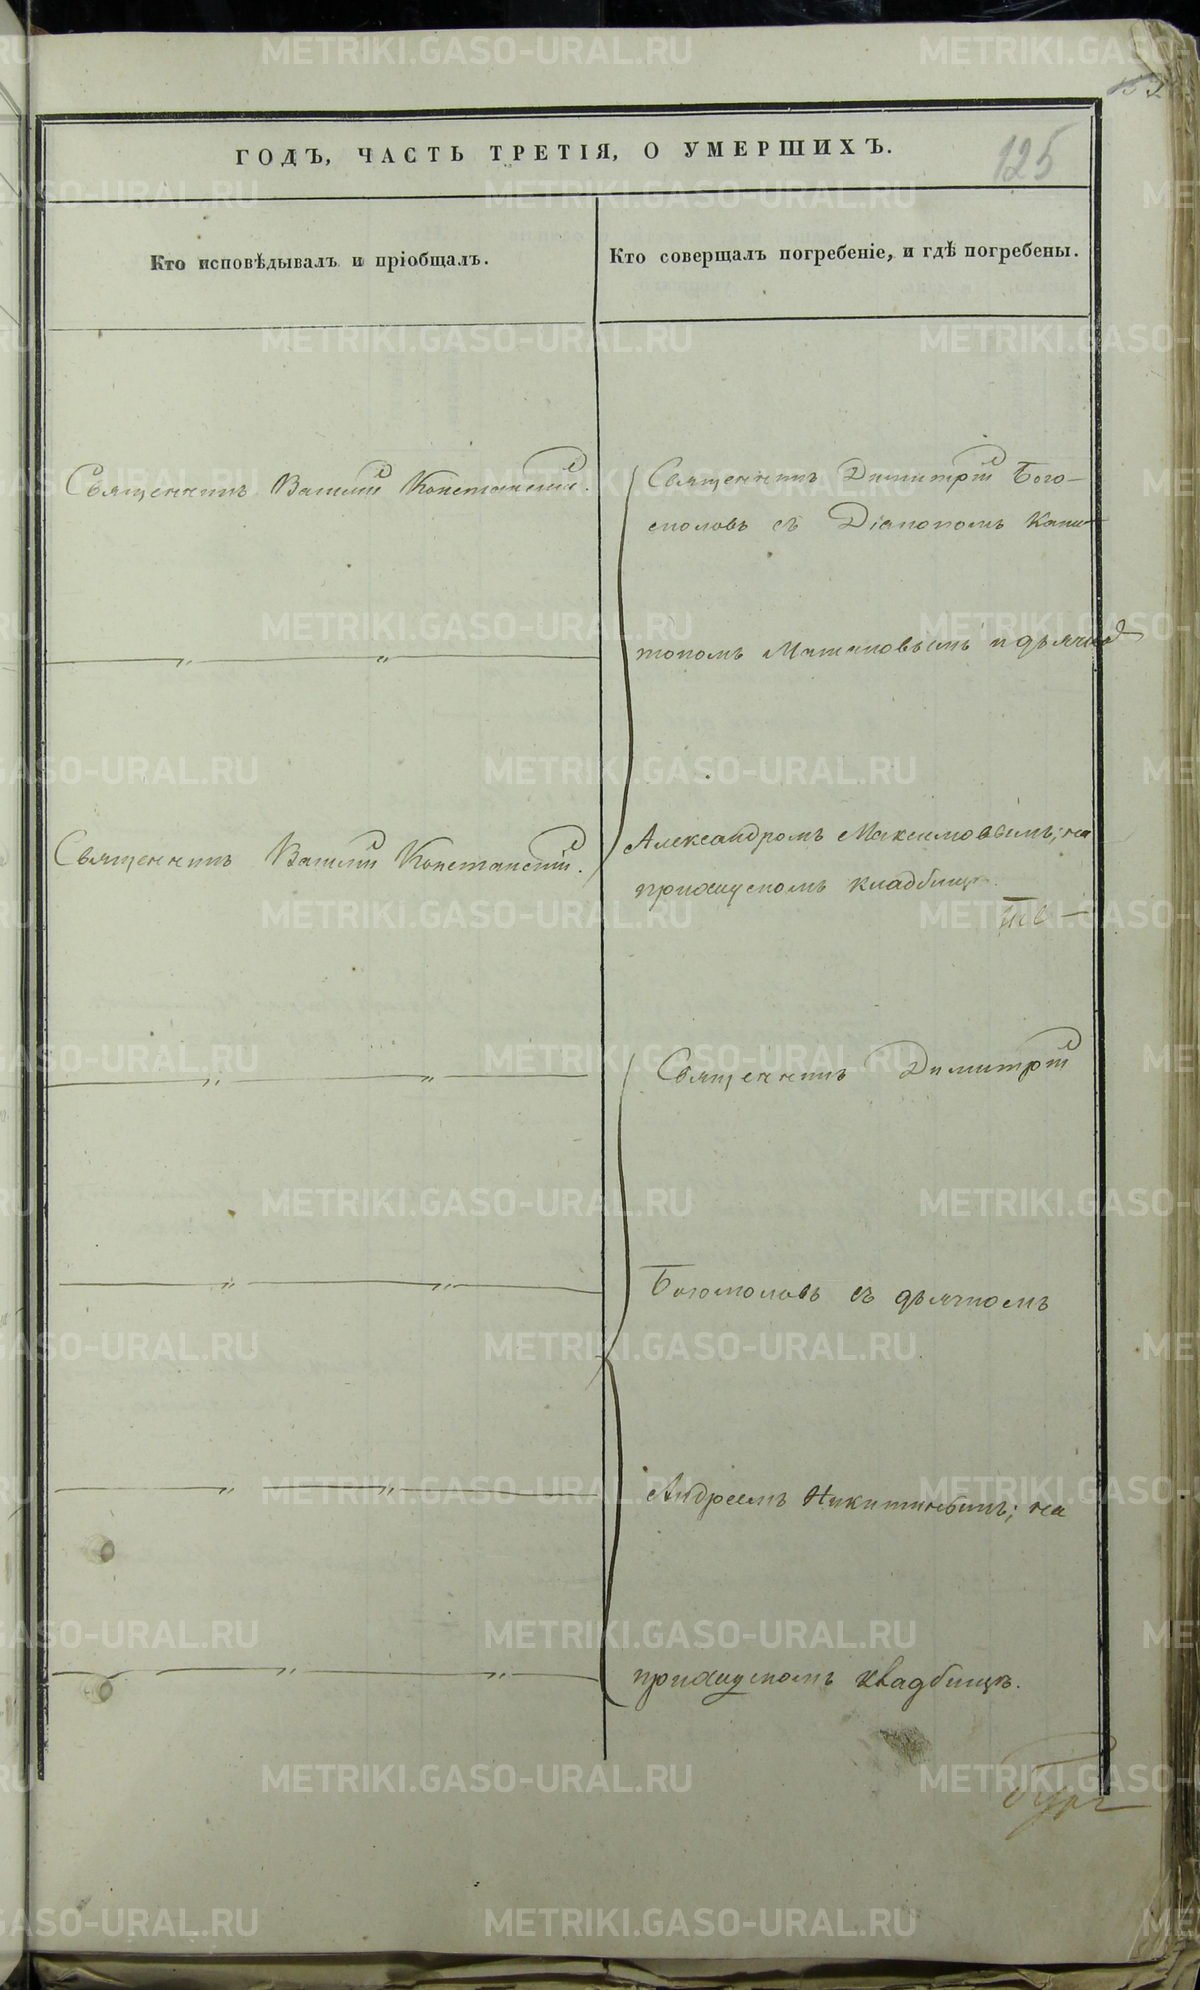 152
ГОДЪ, ЧАСТЬ ТРЕТІЯ, О УМЕРШИХЪ.
125
Кто исповѣдывалъ и пріобщалъ.
Кто совершалъ погребеніе, и гдѣ погребены.
Священникъ Василій Констанскій.
Священникъ Димитрій Бого-
словъ съ Діакономъ Капи-
тономъ
Священникъ Василій Констанскій.
Александромъ Максимовымъ; на
приходскомъ кладбищѣ.
Священникъ Димитрій
Богомоловъ съ дьячкомъ
Андреемъ Никитинымъ; на
приходскомъ кладбищѣ.
METRIKI.GASO-URAL.RU